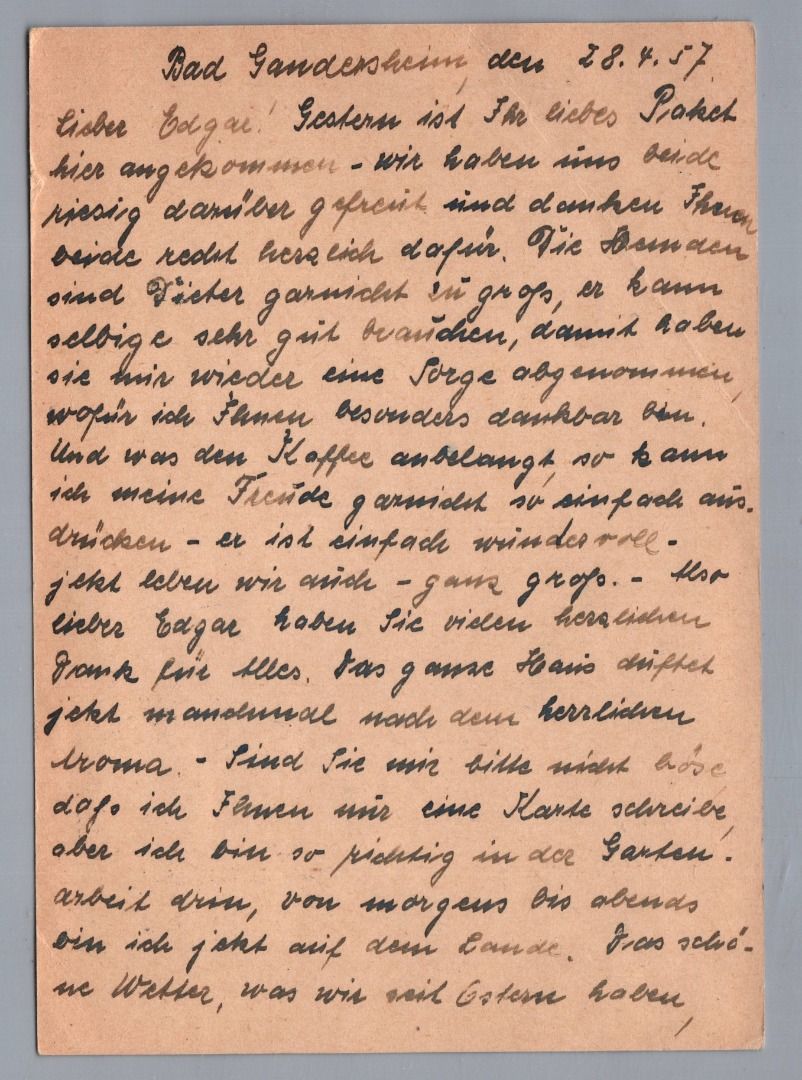 Bad Gandersheim, den 28.4.57.
Lieber Edgar! Gestern ist Ihr liebes Paket
hier angekommen - wir haben uns beide
riesig darüber gefreut und danken Ihnen
beide recht herzlich dafür. Die Hemden
sind Dieter garnicht zu groß, er kann
selbige sehr gut brauchen, damit haben
sie mir wieder eine Sorge abgenommen,
wofür ich Ihnen besonders dankbar bin.
Und was den Kaffee anbelangt, so kann
ich meine Freude garnicht so einfach aus-
drücken - er ist einfach wundervoll -
jetzt leben wir auch - ganz groß. - Also
lieber Edgar haben Sie vielen herzlichen
Dank für Alles. Das ganze Haus duftet
jetzt manchmal nach dem herrlichen
Aroma. - Sind Sie mir bitte nicht böse,
daß ich Ihnen nur eine Karte schreibe,
aber ich bin so richtig in der Garten-
arbeit drin, von morgens bis abends
bin ich jetzt auf dem Lande. Das schö-
ne Wetter, was wir seit Ostern haben,